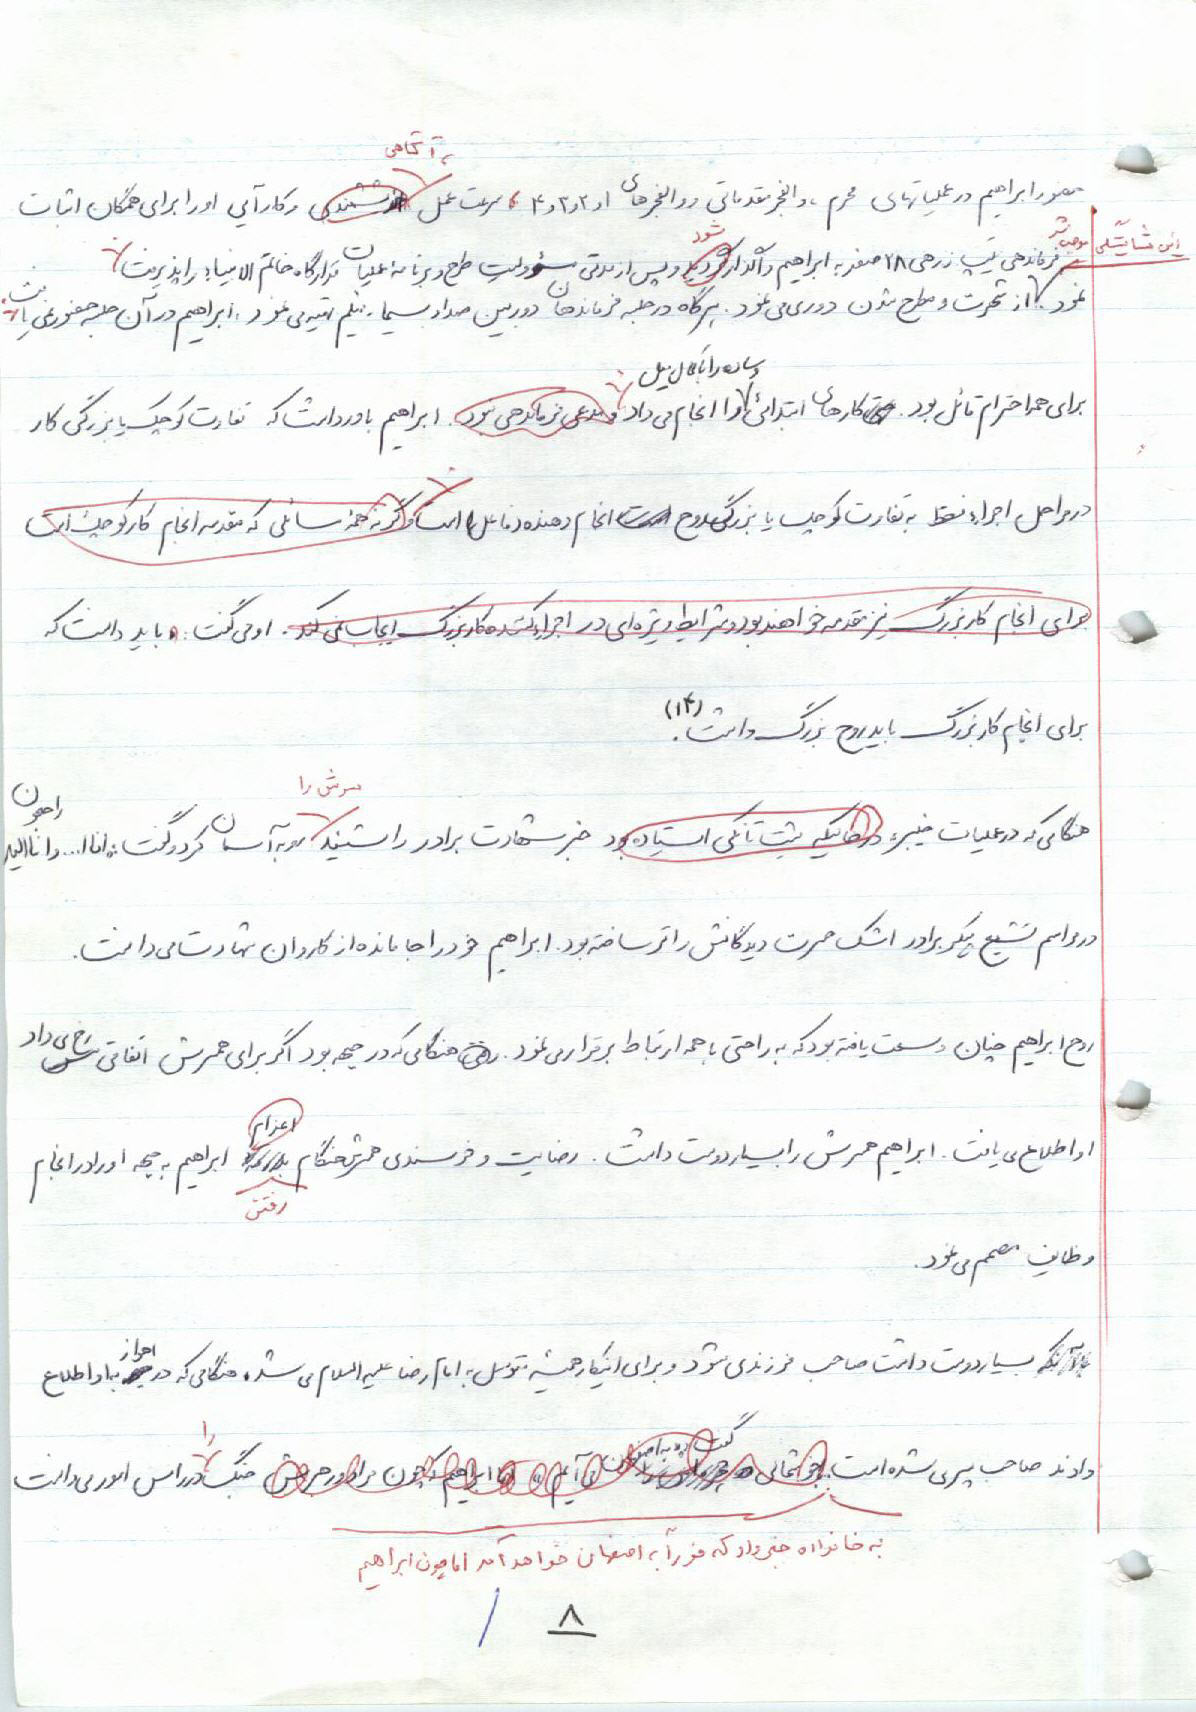 ، آگاهی
حضور ابراهیم در عملیاتهای محرم، والفجر مقدماتی و والفجرهای ۱و۲و۳و۴ ، سرعت عمل اندیشمندی و کارآیی او را برای همگان اثبات
این شایستگی موجب شد فرماندهی تیپ زرهی ۲۸ صفر به ابراهیم واگذار گردید شود و پس از مدتی مسؤولیت طرح و برنامهٔ عملیات قرارگاه خاتم الانبیاء را پذیرفت
نمود. از شهرت و مطرح شدن دوری می نمود. هرگاه در جلسه فرماندهان دوربین صدا و سیما، فیلم تهیه می نمود، ابراهیم در آن جلسه حضور نمی یافت
وساده را با کمال میل
برای همه احترام قائل بود. حتی کارهای ابتدائی را انجام می داد و مدعی فرماندهی نبود. ابراهیم باور داشت که تفاوت کوچک یا بزرگی کار
در مراحل اجراء فقط به تفاوت کوچک یا بزرگی روح انجام دهنده (فاعل) است وگرنه همهٔ مسائلی که مقدمه انجام کار کوچک است
برای انجام کار بزرگ نیز مقدمه خواهند بود و شرایط ویژه‌ای در اجراء کننده کار بزرگ ایجاب نمی کند. او می گفت: باید دانست که
برای انجام کار بزرگ باید روح بزرگ داشت. (۱۴)
سرش را
هنگامی که در عملیات خیبر، در حالیکه پشت تانکی ایستاده بود خبر شهادت برادر را شنید رو به آسمان کرد و گفت: انا ا... و انا الیه راجعون
در مراسم تشییع پیکر برادر اشک حسرت دیدگانش را تر ساخته بود. ابراهیم خود را جا مانده از کاروان شهادت می دانست.
روح ابراهیم چنان وسعت یافته بود که به راحتی با همه ارتباط برقرار می نمود. هنگامی که در جبهه بود اگر برای همسرش اتفاقی رخ می داد
او اطلاع می یافت. ابراهیم همسرش را بسیار دوست داشت. رضایت و خرسندی همسرش هنگام اعزام ابراهیم به جبهه او را در انجام
رفتن
وظایف مصمم می نمود.
بسیار دوست داشت صاحب فرزندی شود و برای اینکار همیشه متوسل به امام رضا علیه السلام می شد. هنگامی که در اهواز به او اطلاع
دادند صاحب پسری شده است با خوشحالی گفت به اصفهان می آیم اما ابراهیم که چون جنگ را در رأس امور می دانست
به خانواده خبر داد که فوراً به اصفهان خواهد آمد اما چون ابراهیم
۸